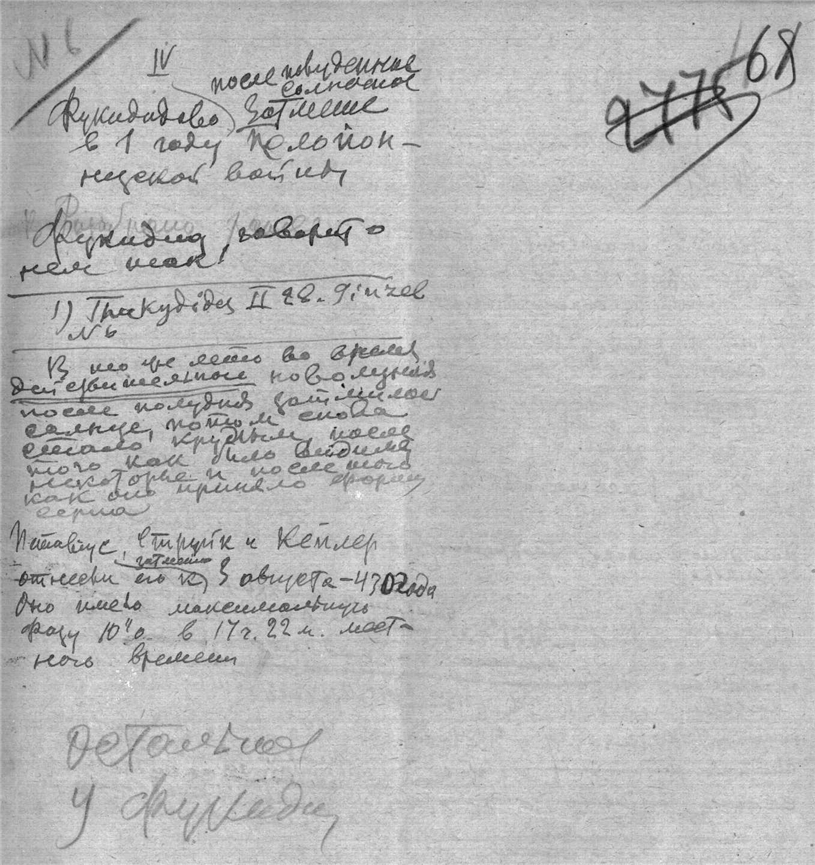 N 6
68
2775
IV
после полуденное
солнечное
Фукидидово затмение
в 1 году Пелопон-
незской войны
Фукидид говорит о
нем так:
1) Thukydides II 28. Ginzel
N 6
В то же лето во время
действительного новолуния
после полудня затмилось
солнце, потом снова
стало круглым, после
того как было видимы
некоторые и после того
как оно приняло форму
серпа
Петавиус, Стройк и Кеплер
затмение
отнесли его к 3 августа -430 года
Оно имело максимальную
фазу 10"0 в 17 ч. 22 м. мест-
ного времени
Остальное
у Фукидид